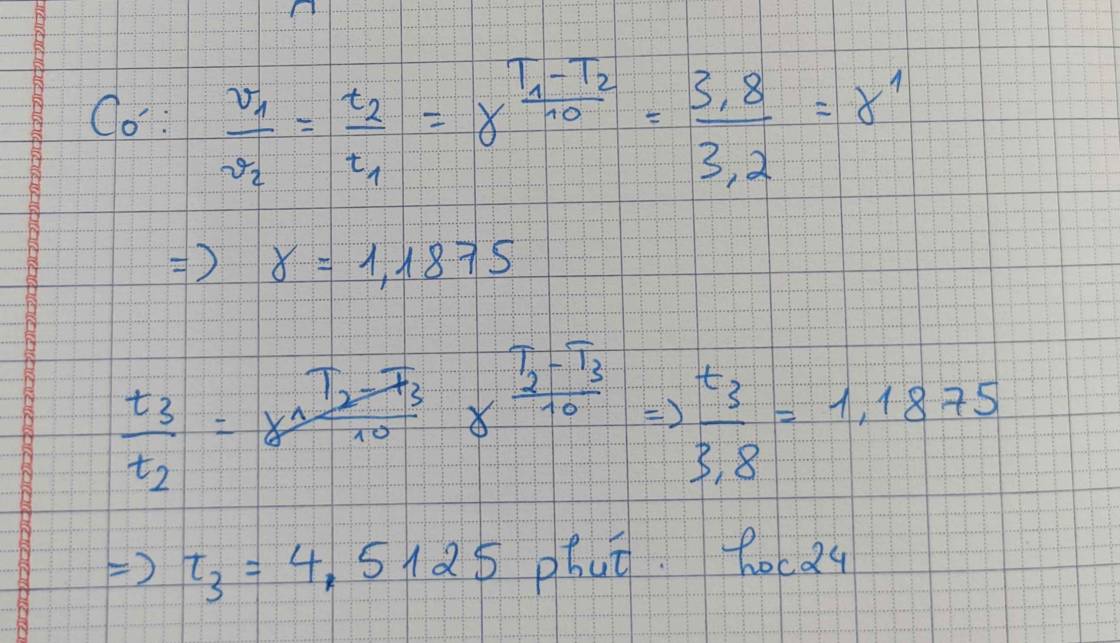 Có: v₁/v₂ = t₂/t₁ = γ^((T₁-T₂)/10) = 3,8/3,2 = γ¹
=> γ = 1,1875
t₃/t₂ = γ^((T₂-T₃)/10) => t₃/3,8 = 1,1875
=> t₃ = 4,5125 phút. hoc24